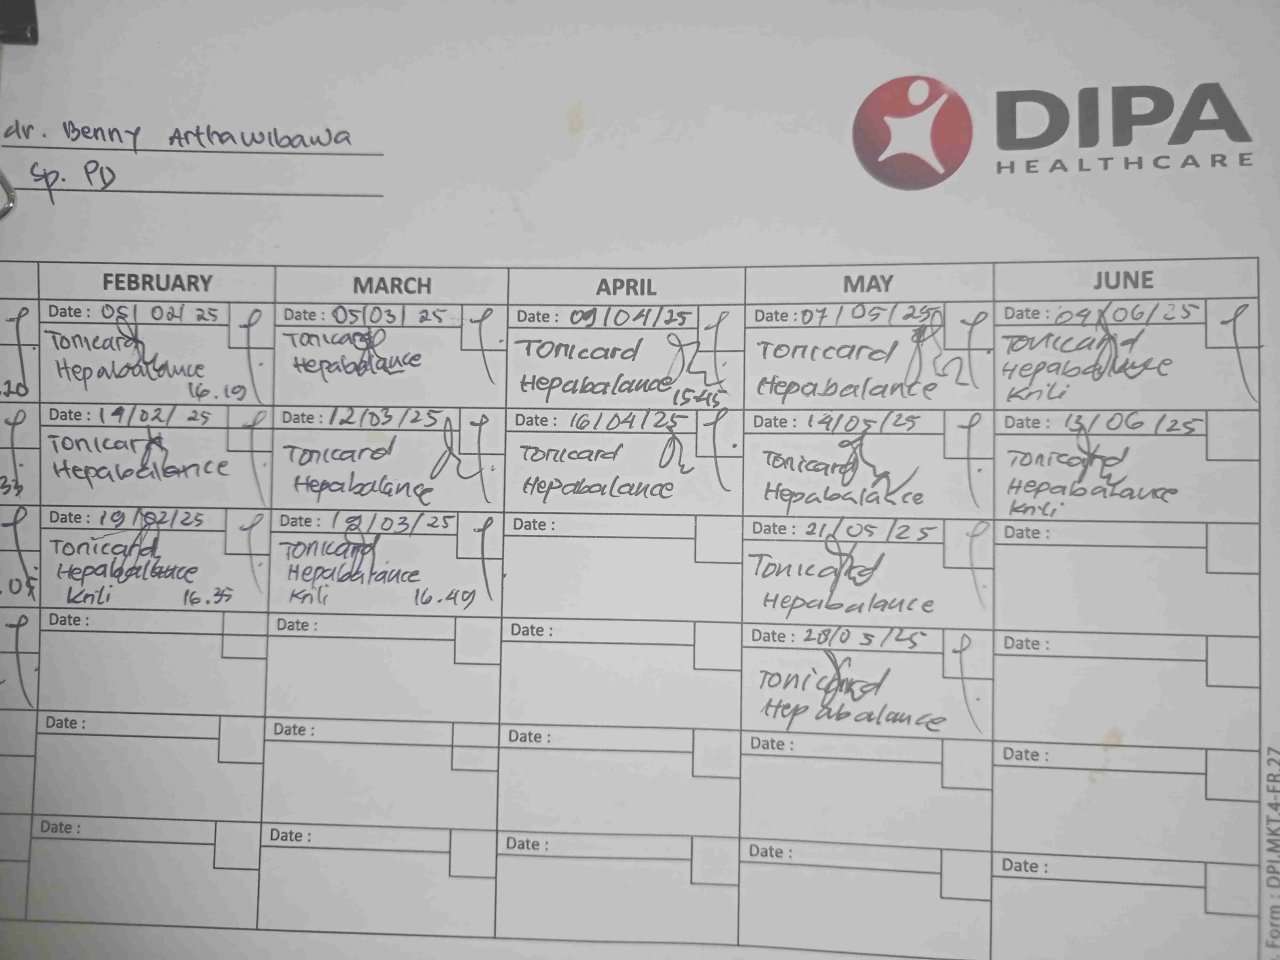 DIPA
HEALTHCARE
dr. Benny Arthawibawa
Sp. PD
FEBRUARY MARCH APRIL MAY JUNE
.20
Date : 05/02/25
Tonicard
Hepabalance
16.19
Date : 05/03/25
Tonicard
Hepabalance
Date : 09/04/25
Tonicard
Hepabalance
15.45
Date : 07/05/25
Tonicard
Hepabalance
Date : 04/06/25
Tonicard
Hepabalance
Krili
33
Date : 14/02/25
Tonicard
Hepabalance
Date : 12/03/25
Tonicard
Hepabalance
Date : 16/04/25
Tonicard
Hepabalance
Date : 14/05/25
Tonicard
Hepabalance
Date : 13/06/25
Tonicard
Hepabalance
Krili
.05
Date : 19/02/25
Tonicard
Hepabalance
Krili 16.35
Date : 18/03/25
Tonicard
Hepabalance
Krili 16.49
Date :
Date : 21/05/25
Tonicard
Hepabalance
Date :
Date :
Date :
Date :
Date : 28/05/25
Tonicard
Hepabalance
Date :
Date :
Date :
Date :
Date :
Date :
Date :
Date :
Date :
Date :
Date :
Form : DPI.MKT.4-FR.27